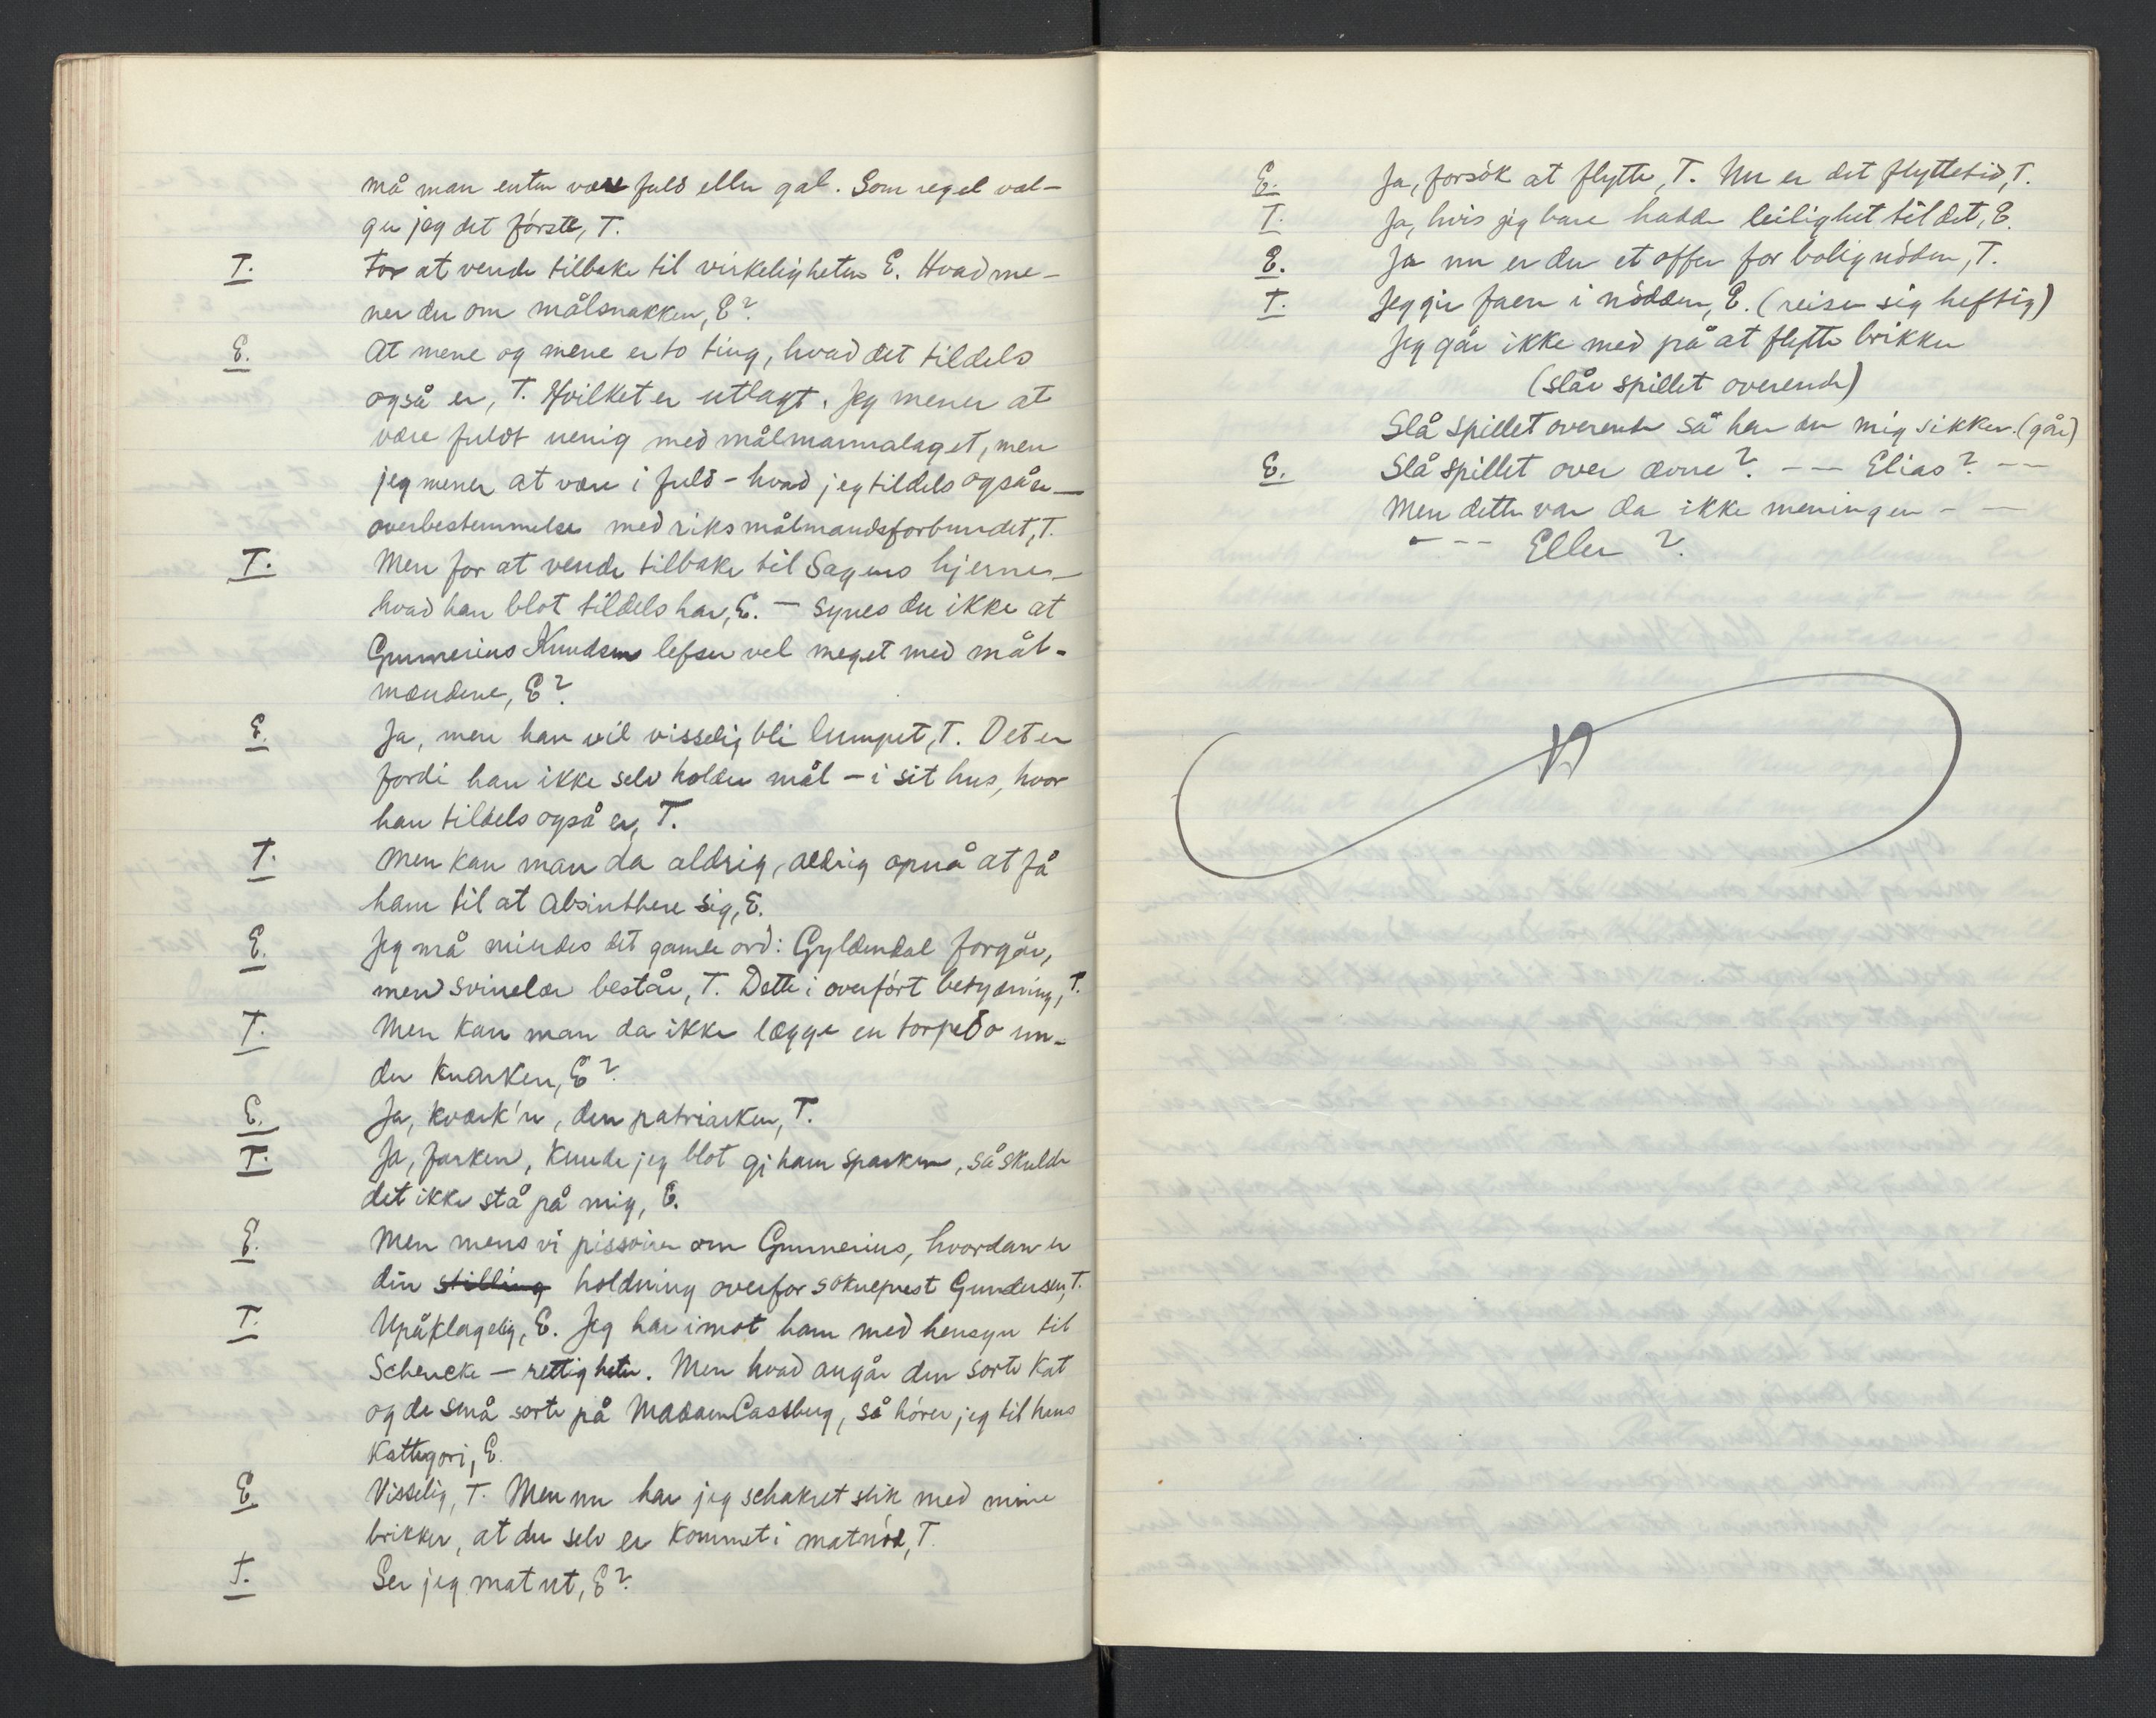 må man enten være fuld eller gal. Som regel væl-
ger jeg det første, T.
T. For at vende tilbake til virkeligheten E. Hvad me-
ner du om målsnakken, E?
E. At mene og mene er to ting, hvad det tildels
også er, T. Hvilket er utlagt. Jeg mener at
være fuldt uenig med målmannalaget, men
jeg mener at være i fuld - hvad jeg tildels også er —
overbestemmelse med riksmålmandsforbundet, T.
T. Men for at vende tilbake til Sagens hjerne —
hvad han blot tildels har, E. — synes du ikke at
Gunnerius Knudsens lefser vel meget med mål-
mændene, E?
E. Ja, men han vil visselig bli lumpet, T. Det er
fordi han ikke selv holder mål — i sit hus, hvor
han tildels også er, T.
T. Men kan man da aldrig, aldrig opnå at få
ham til at absinthere sig, E.
E. Jeg må mindes det gamle ord: Gyldendal forgår,
men svinelær består, T. Dette i overført betydning, T.
T. Men kan man da ikke lægge en torpedo un-
der knarken, E?
E. Ja, kværk'n, den patriarken, T.
T. Ja, farken, kunde jeg blot gi ham sparken, så skulde
det ikke stå på mig, E.
E. Men mens vi pissoirer om Gunnerius, hvordan er
din stilling holdning overfor soknepræst Gundersen, T.
T. Upåklagelig, E. Jeg har imot ham med hensyn til
Schencke — rettigheter. Men hvad angår den sorte kat
og de små sorte på Madam Cassberg, så hører jeg til hans
kattegori, E.
E. Visselig, T. Men nu har jeg schakret slik med mine
brikker, at du selv er kommet i matnød, T.
T. Ser jeg mat ut, E?
E. Ja, forsøk at flytte, T. Nu er det flyttetid, T.
T. Ja, hvis jeg bare hadde leilighet til det, E.
E. Ja nu er du et offer for bolignøden, T.
T. Jeg gir faen i nødden, E. (reiser sig heftig)
Jeg går ikke med på at flytte brikker
(slår spillet overende)
Slå spillet overende så har du mig sikker. (går)
E. Slå spillet over ævne? --- Elias? --
Men dette var da ikke meningen - —
- -- Eller?